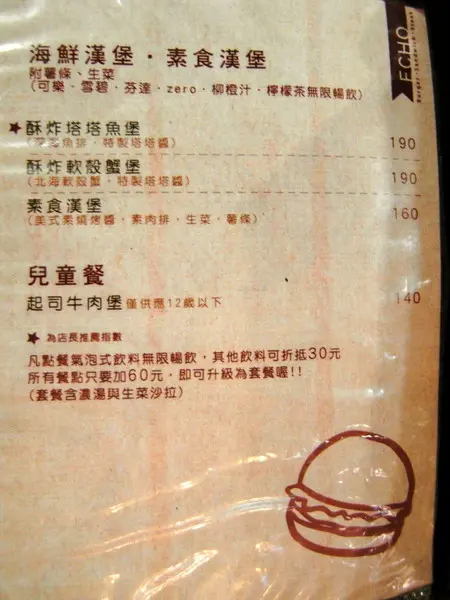 海鮮漢堡・素食漢堡
附薯條、生菜
(可樂・雪碧・芬達・zero・柳橙汁・檸檬茶無限暢飲)
ECHO
Burger·Sandwich·Steak
★酥炸塔塔魚堡 190
魚排・特製塔塔醬)
酥炸軟殼蟹堡 190
(北海軟殼蟹・特製塔塔醬)
素食漢堡 160
(美式素燒烤醬・素肉排・生菜・薯條)
兒童餐
起司牛肉堡 僅供應12歲以下 140
★ 為店長推薦指數
凡點餐氣泡式飲料無限暢飲,其他飲料可折抵30元
所有餐點只要加60元,即可升級為套餐喔!!
(套餐含濃湯與生菜沙拉)